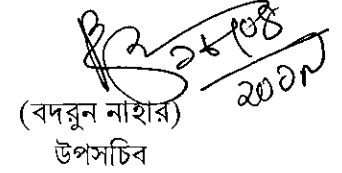 ২৮/০৪
২০১৭
(বদরুন নাহার)
উপসচিব